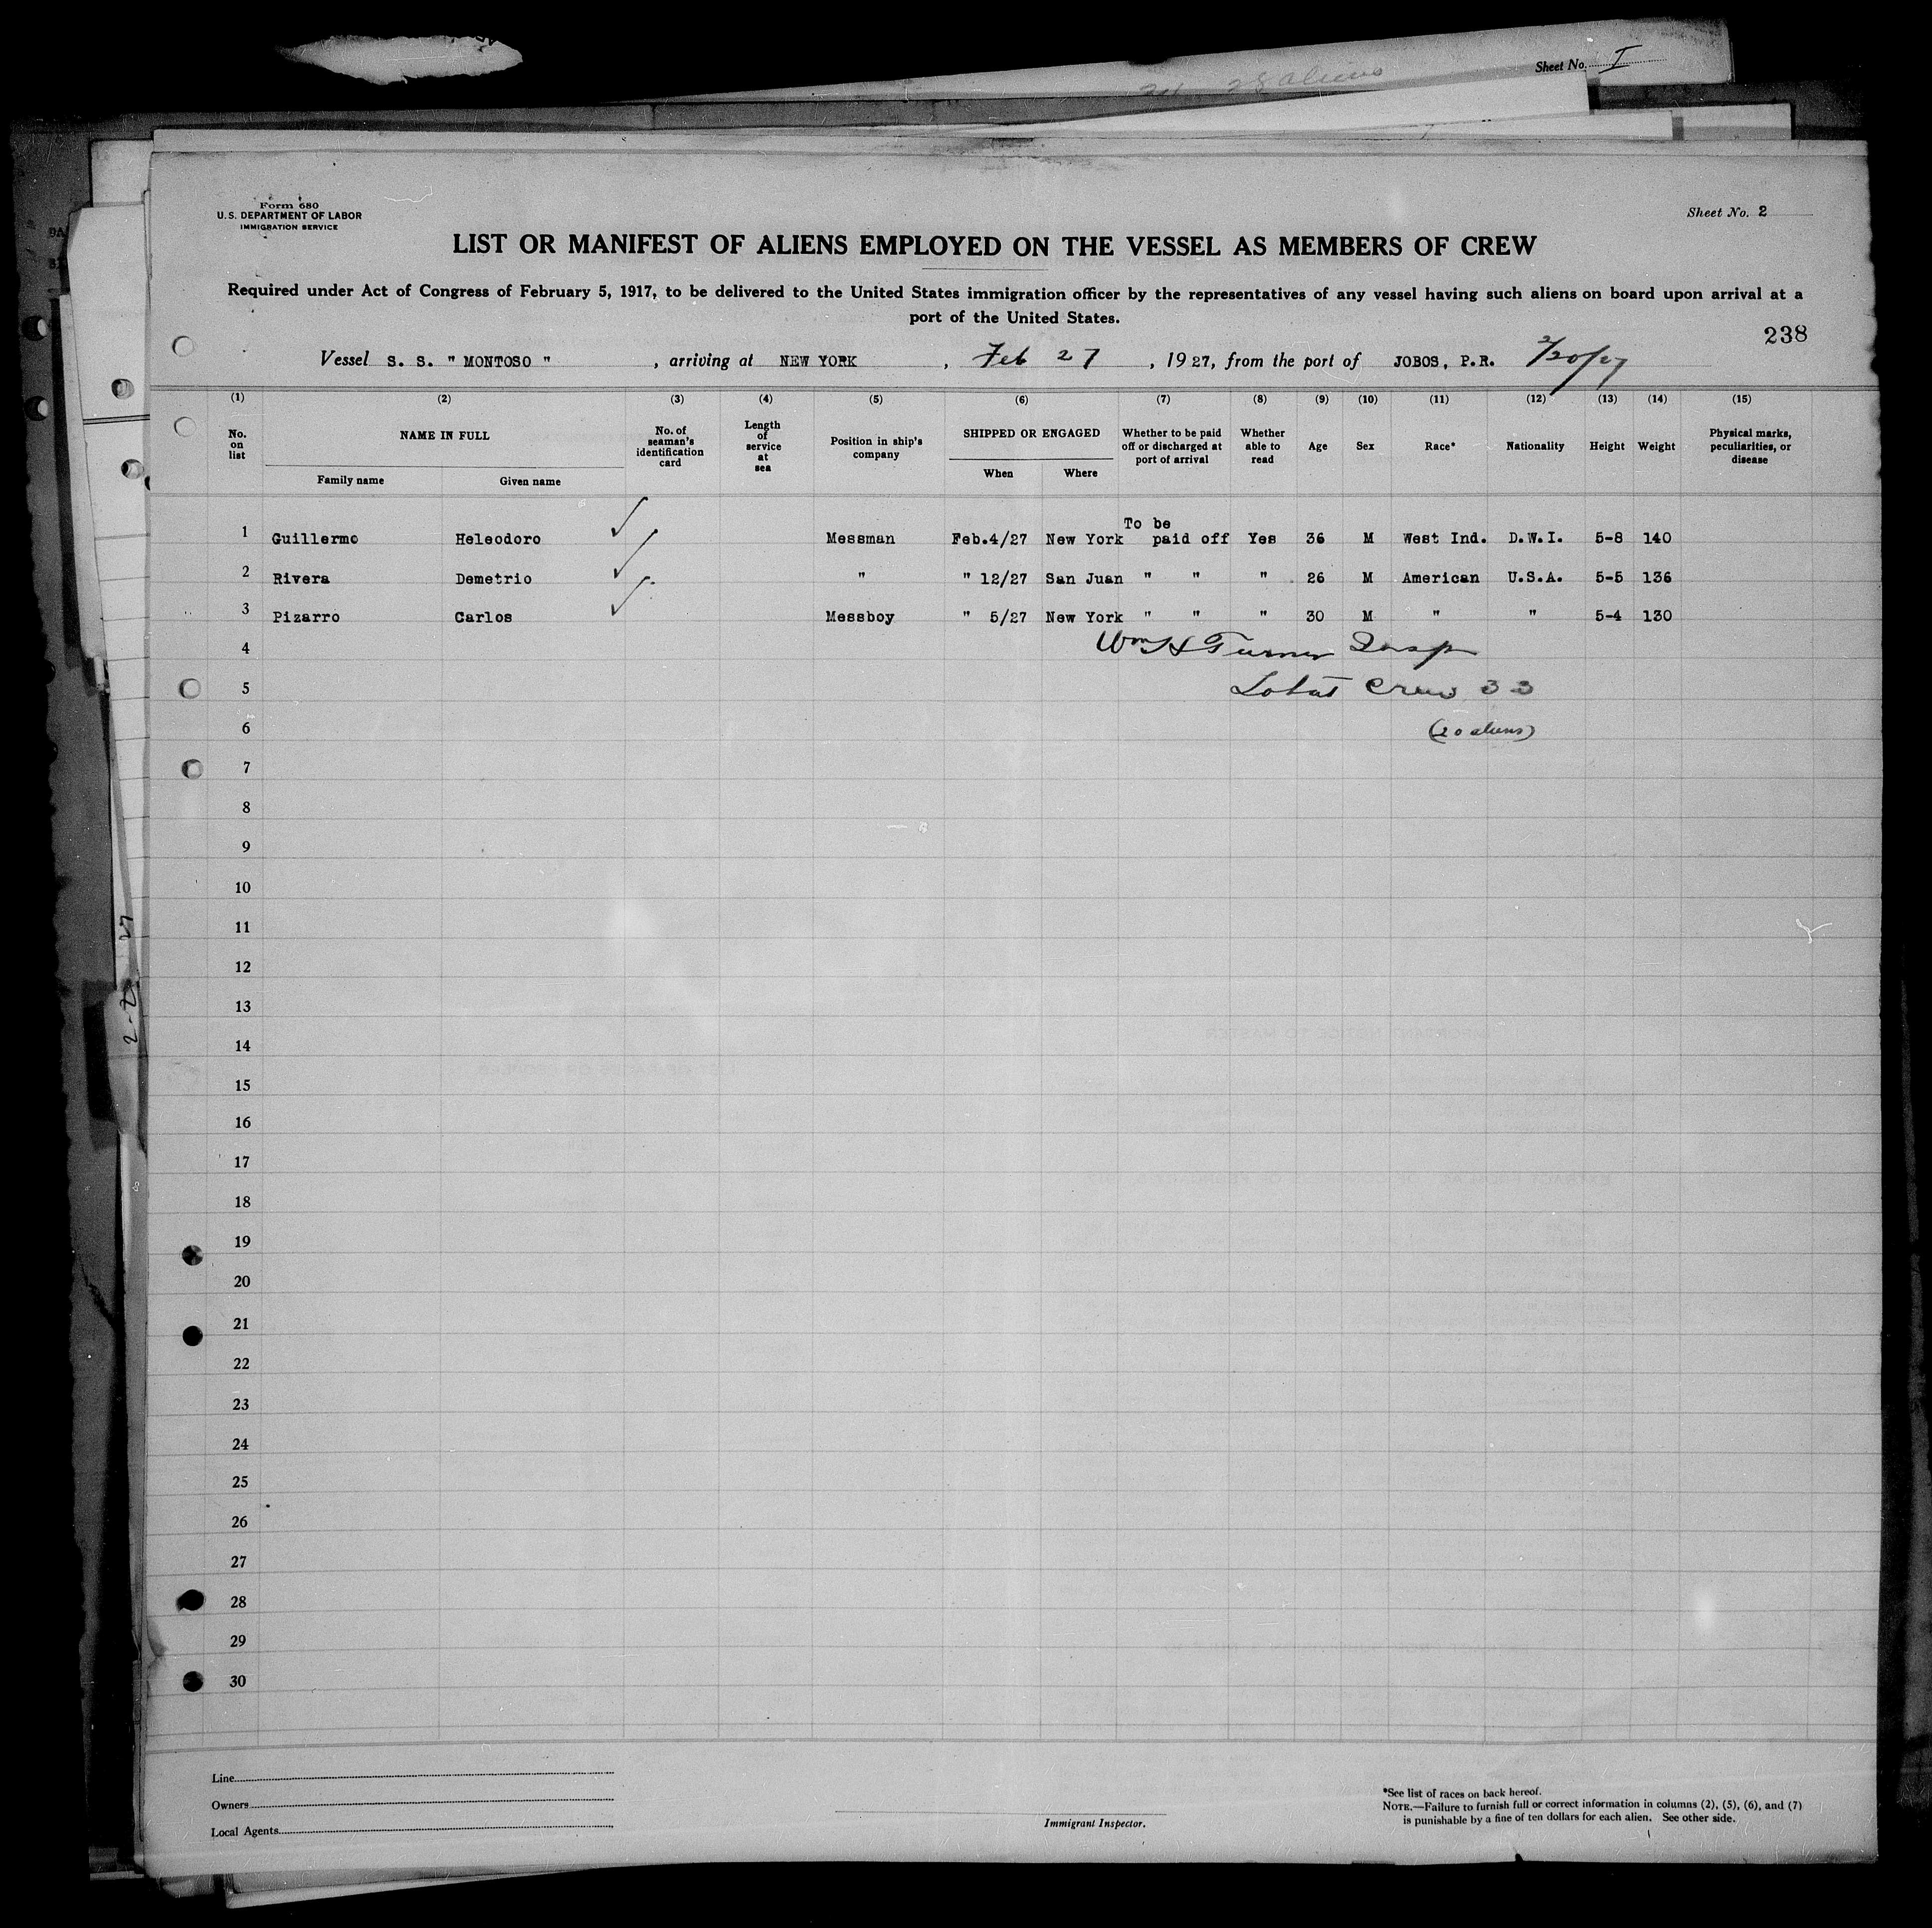 28 aliens
Sheet No. I
Form 680
U.S. DEPARTMENT OF LABOR
IMMIGRATION SERVICE
Sheet No. 2
LIST OR MANIFEST OF ALIENS EMPLOYED ON THE VESSEL AS MEMBERS OF CREW
Required under Act of Congress of February 5, 1917, to be delivered to the United States immigration officer by the representatives of any vessel having such aliens on board upon arrival at a
port of the United States.
238
Vessel S. S. " MONTOSO ", arriving at NEW YORK, Feb 27, 1927, from the port of JOBOS, P.R. 2/20/27
(1) (2) (3) (4) (5) (6) (7) (8) (9) (10) (11) (12) (13) (14) (15)
No. on list NAME IN FULL Family name Given name No. of seaman's identification card Length of service at sea Position in ship's company SHIPPED OR ENGAGED When Where Whether to be paid off or discharged at port of arrival Whether able to read Age Sex Race* Nationality Height Weight Physical marks, peculiarities, or disease
1 Guillermo Heleodoro Messman Feb.4/27 New York To be paid off Yes 36 M West Ind. D.W.I. 5-8 140
2 Rivera Demetrio " " 12/27 San Juan " " " 26 M American U.S.A. 5-5 136
3 Pizarro Carlos Messboy " 5/27 New York " " " 30 M " " 5-4 130
4 Wm H Turner Insp
5 Crew 33
6 (20 aliens)
7
8
9
10
11
12
13
14
15
16
17
18
19
20
21
22
23
24
25
26
27
28
29
30
Line
Owners
Local Agents
Immigrant Inspector.
*See list of races on back hereof.
NOTE.—Failure to furnish full or correct information in columns (2), (5), (6), and (7)
is punishable by a fine of ten dollars for each alien. See other side.